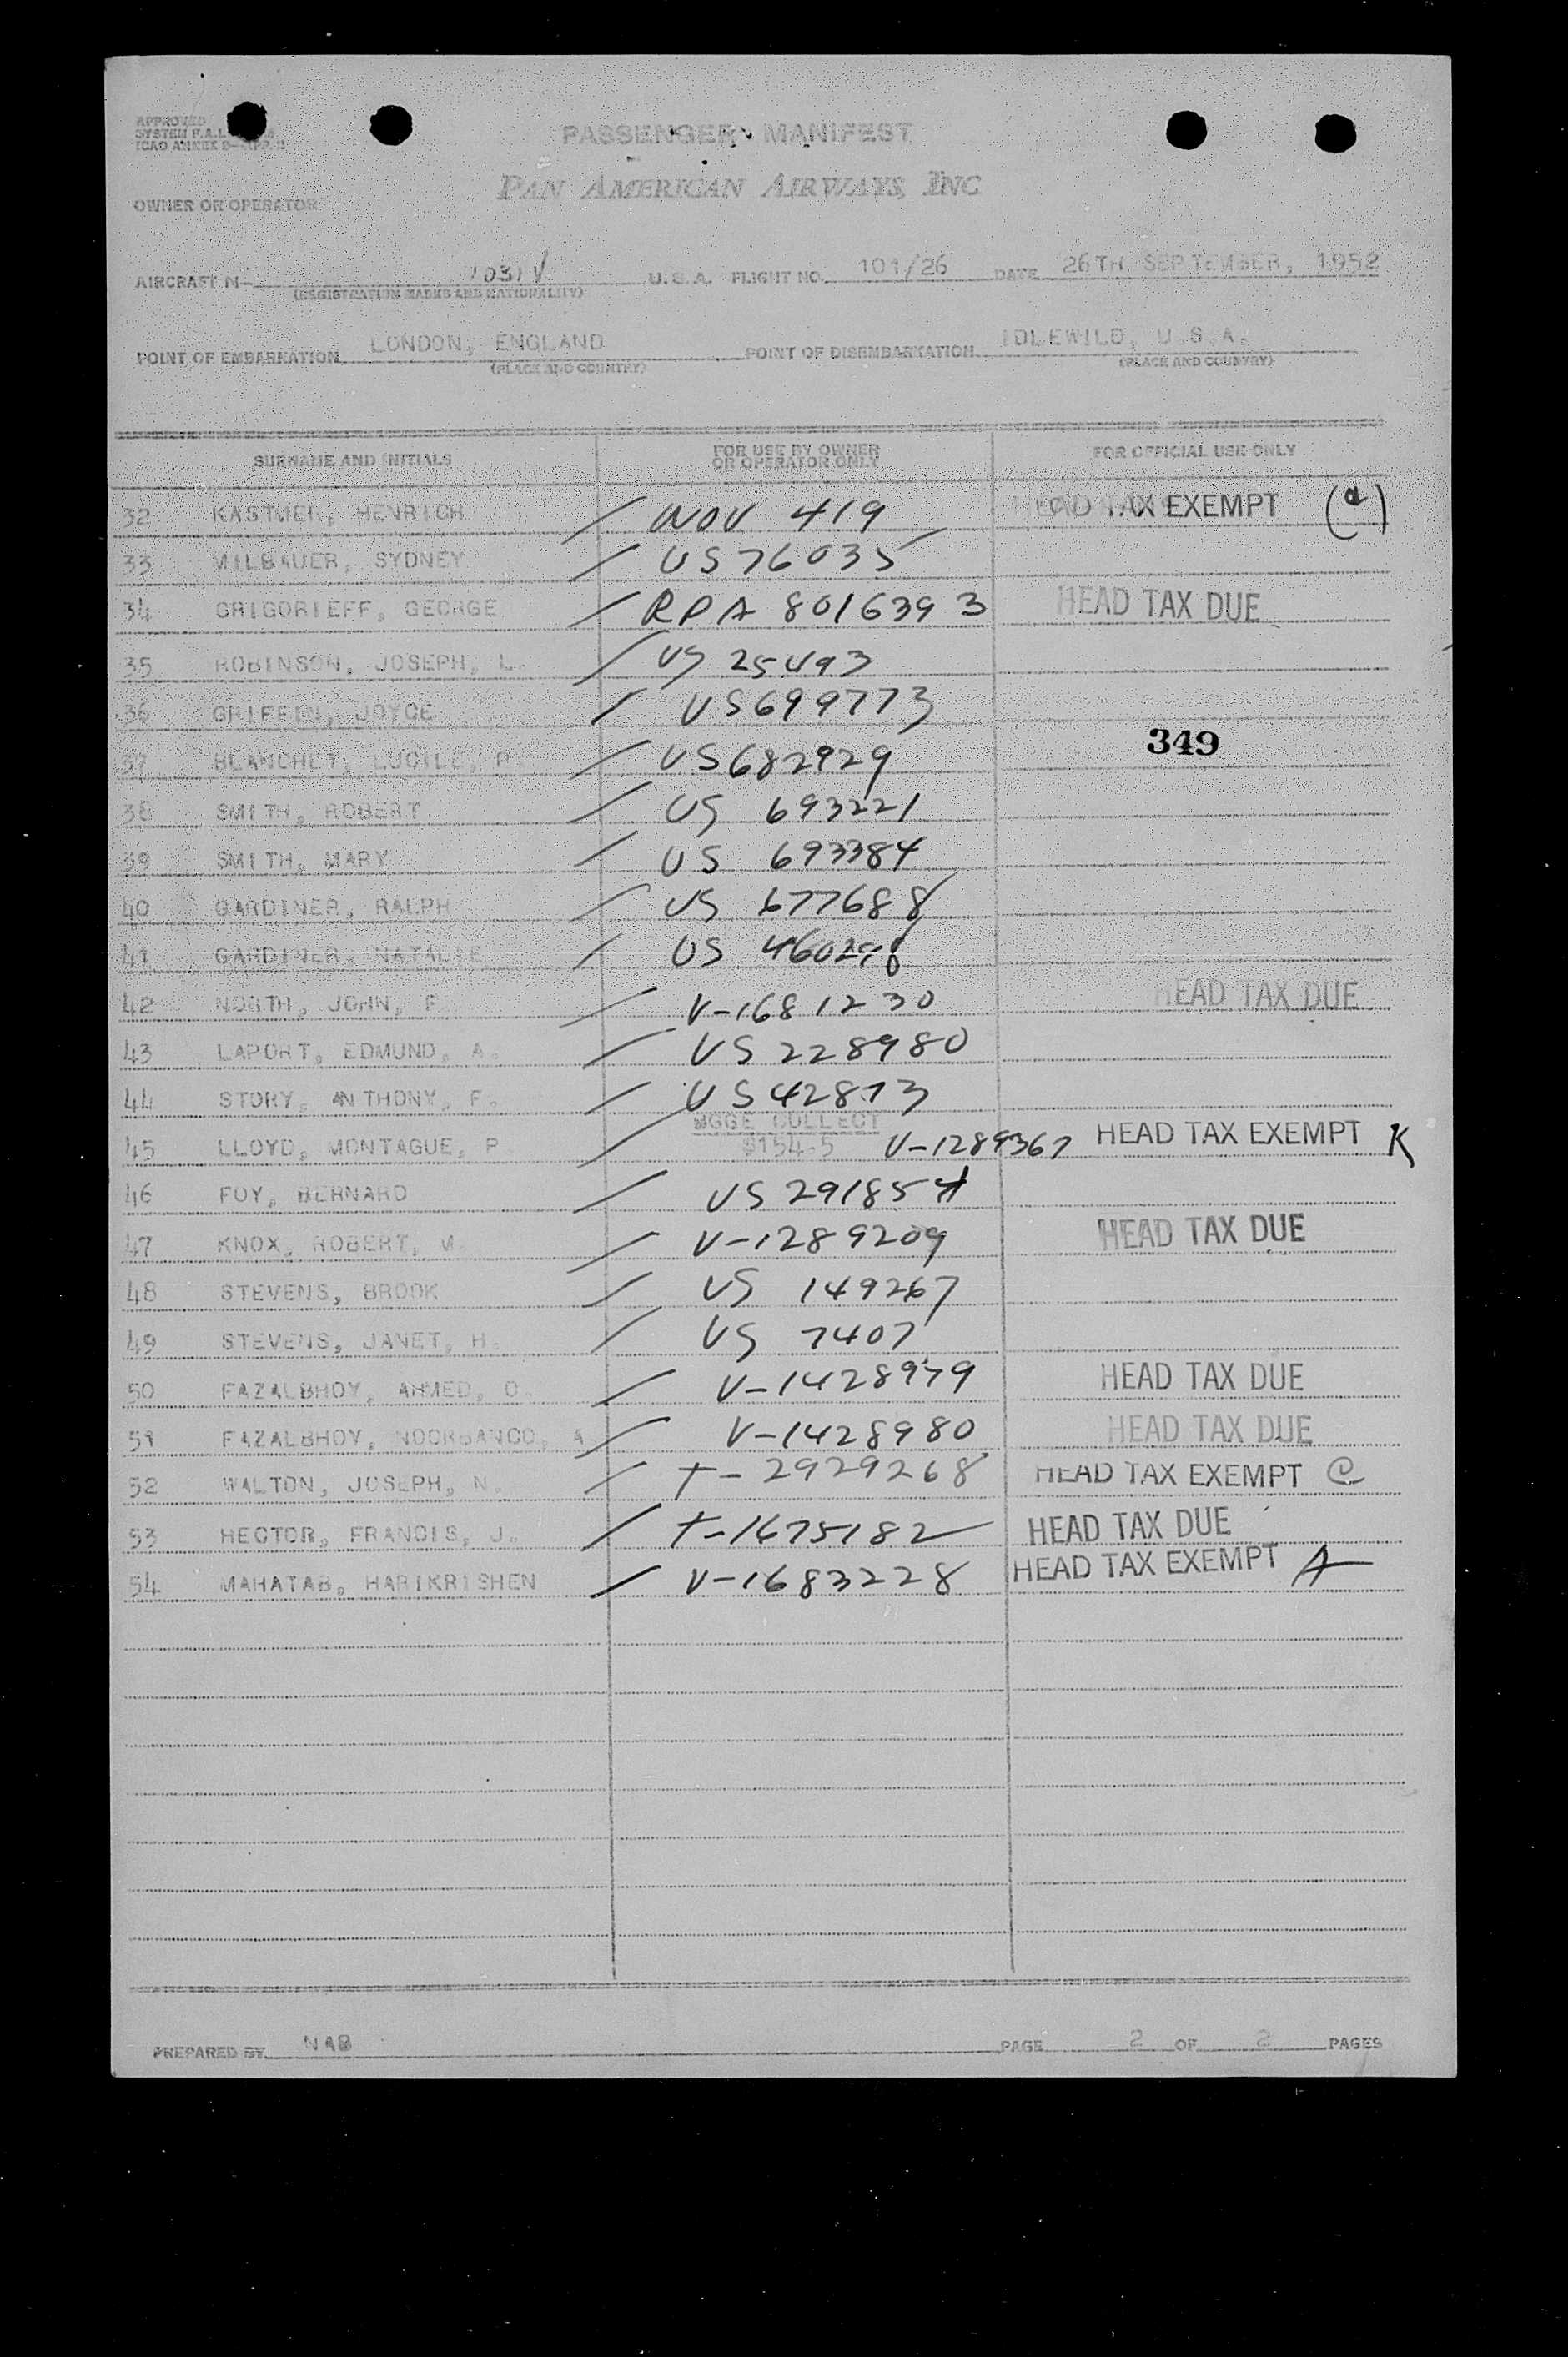 APPROVED
SYSTEM F.A.L.
ICAO ANNEX 9—APP.
PASSENGER MANIFEST
PAN AMERICAN AIRWAYS, INC
OWNER OR OPERATOR
AIRCRAFT N- 1031V U.S.A. FLIGHT NO. 101/26 DATE 26TH SEPTEMBER, 1952
(REGISTRATION MARKS AND NATIONALITY)
POINT OF EMBARKATION LONDON, ENGLAND POINT OF DISEMBARKATION IDLEWILD, U.S.A.
(PLACE AND COUNTRY) (PLACE AND COUNTRY)
SURNAME AND INITIALS FOR USE BY OWNER OR OPERATOR ONLY FOR OFFICIAL USE ONLY
32 KASTNER, HENRICH / WOV 419 HEAD TAX EXEMPT (a)
33 MILBAUER, SYDNEY / US 76035
34 GRIGORIEFF, GEORGE / RPA 8016393 HEAD TAX DUE
35 ROBINSON, JOSEPH, L. / US 25493
36 GRIFFIN, JOYCE / US699773
349
37 BLANCHET, LUCILE, P / US682929
38 SMITH, ROBERT / US 693221
39 SMITH, MARY / US 693384
40 GARDINER, RALPH / US 677688
41 GARDINER, NATALIE / US
42 NORTH, JOHN, F / V-1681230 HEAD TAX DUE
43 LAPORT, EDMUND, A. / US 228980
44 STORY, ANTHONY, F. / US 42873
45 LLOYD, MONTAGUE, P / BGGE COLLECT $154-5 V-1289367 HEAD TAX EXEMPT K
46 FOY, BERNARD / US 291854
47 KNOX, ROBERT, M. / V-1289209 HEAD TAX DUE
48 STEVENS, BROOK / US 149267
49 STEVENS, JANET, H. / US 7407
50 FAZALBHOY, AHMED, O. / V-1428979 HEAD TAX DUE
51 FAZALBHOY, NOORBANOO, A / V-1428980 HEAD TAX DUE
52 WALTON, JOSEPH, N / T-2929268 HEAD TAX EXEMPT C
53 HECTOR, FRANCIS, J. / T-1675182 HEAD TAX DUE
54 MAHATAB, HARIKRISHEN / V-1683228 HEAD TAX EXEMPT A
PREPARED BY NAB PAGE 2 OF 2 PAGES